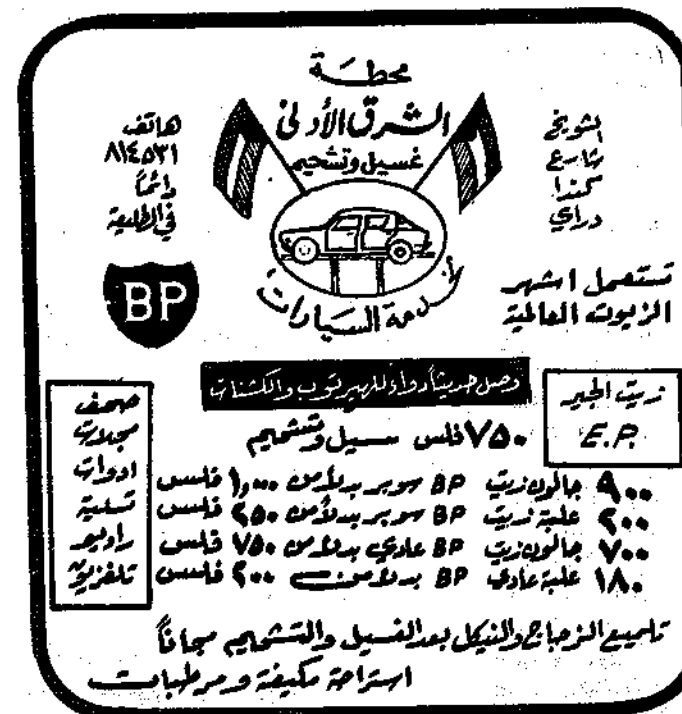 محطة
الشرق الأدنى
غسيل وتشحيم
لخدمة السيارات
الشويخ
شارع
كندا
دراي
هاتف
٨١٤٥٣١
دائماً
في الطليعة
BP
تستعمل اشهر
الزيوت العالمية
وصل حديثاً دواء للهيرتوب والكشنات
زيت الجير
E.P.
٧٥٠ فلس غسيل وتشحيم
٩٠٠ جالون زيت BP سوبر بدلاً من ١,٠٠٠ فلس
٢٠٠ علبة زيت BP سوبر بدلاً من ٢٥٠ فلس
٧٠٠ جالون زيت BP عادي بدلاً من ٧٥٠ فلس
١٨٠ علبة عادي BP بدلاً من ٢٠٠ فلس
صحف
مجلات
ادوات
تسلية
راديو
تلفزيون
تلميع الزجاج والنيكل بعد الغسيل والتشحيم مجاناً
استراحة مكيفة ومرطبات